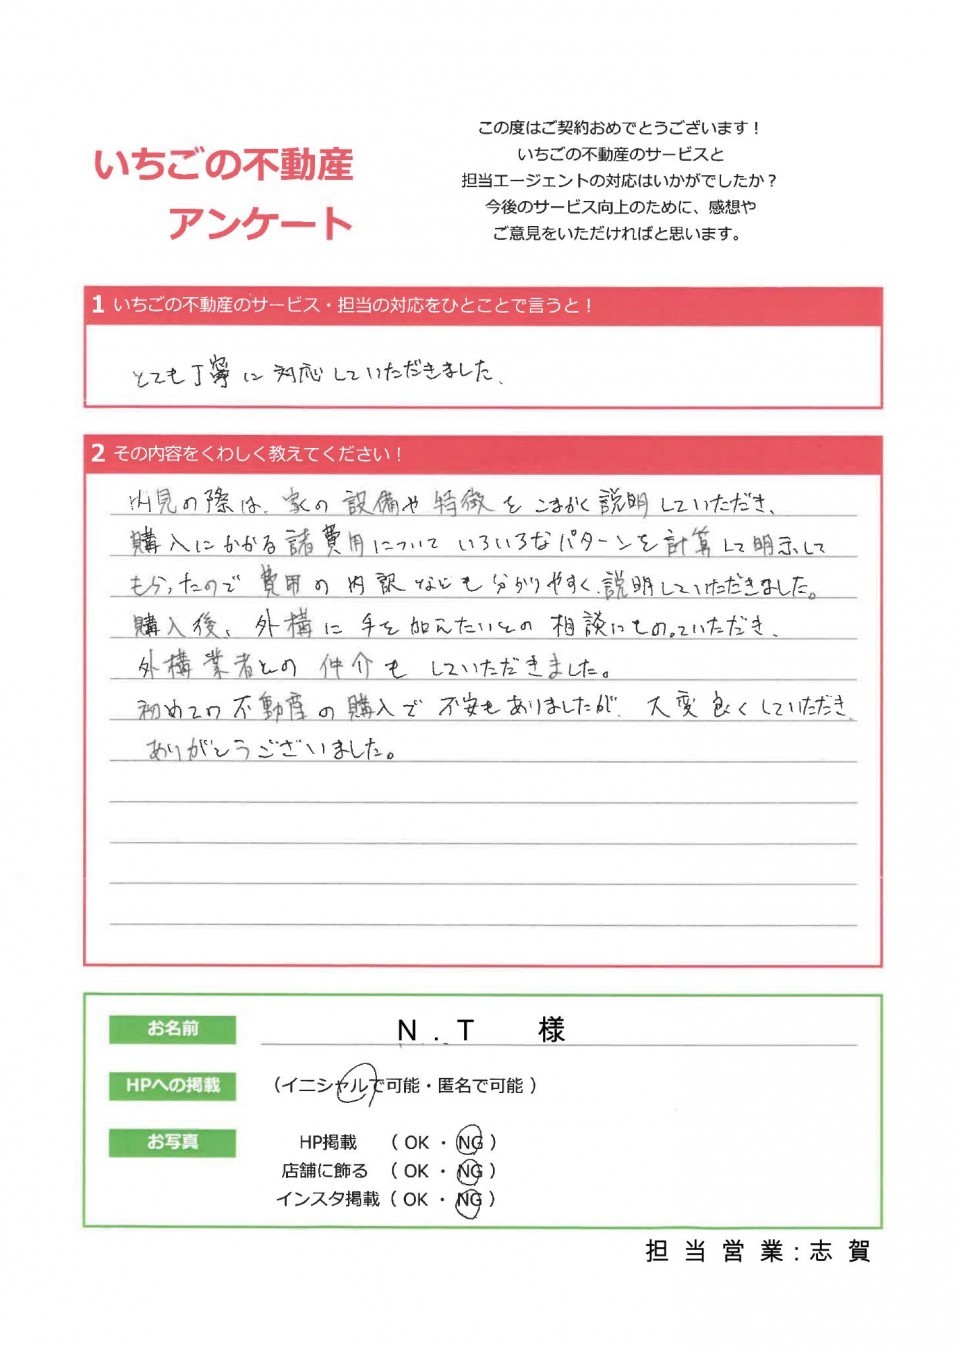 いちごの不動産
アンケート
この度はご契約おめでとうございます！
いちごの不動産のサービスと
担当エージェントの対応はいかがでしたか？
今後のサービス向上のために、感想や
ご意見をいただければと思います。
1 いちごの不動産のサービス・担当の対応をひとことで言うと！
とても丁寧に対応していただきました、
2 その内容をくわしく教えてください！
内見の際は、家の設備や特徴をこまかく説明していただき、
購入にかかる諸費用についていろいろなパターンを計算して明示して
もらったので費用の内訳なども分かりやすく説明していただきました。
購入後、外構に手を加えたいとの相談にものっていただき、
外構業者との仲介もしていただきました。
初めての不動産の購入で不安もありましたが、大変良くしていただき、
ありがとうございました。
お名前 N.T 様
HPへの掲載 （イニシャルで可能・匿名で可能）
お写真 HP掲載 （OK・NG）
店舗に飾る （OK・NG）
インスタ掲載（OK・NG）
担当営業:志賀